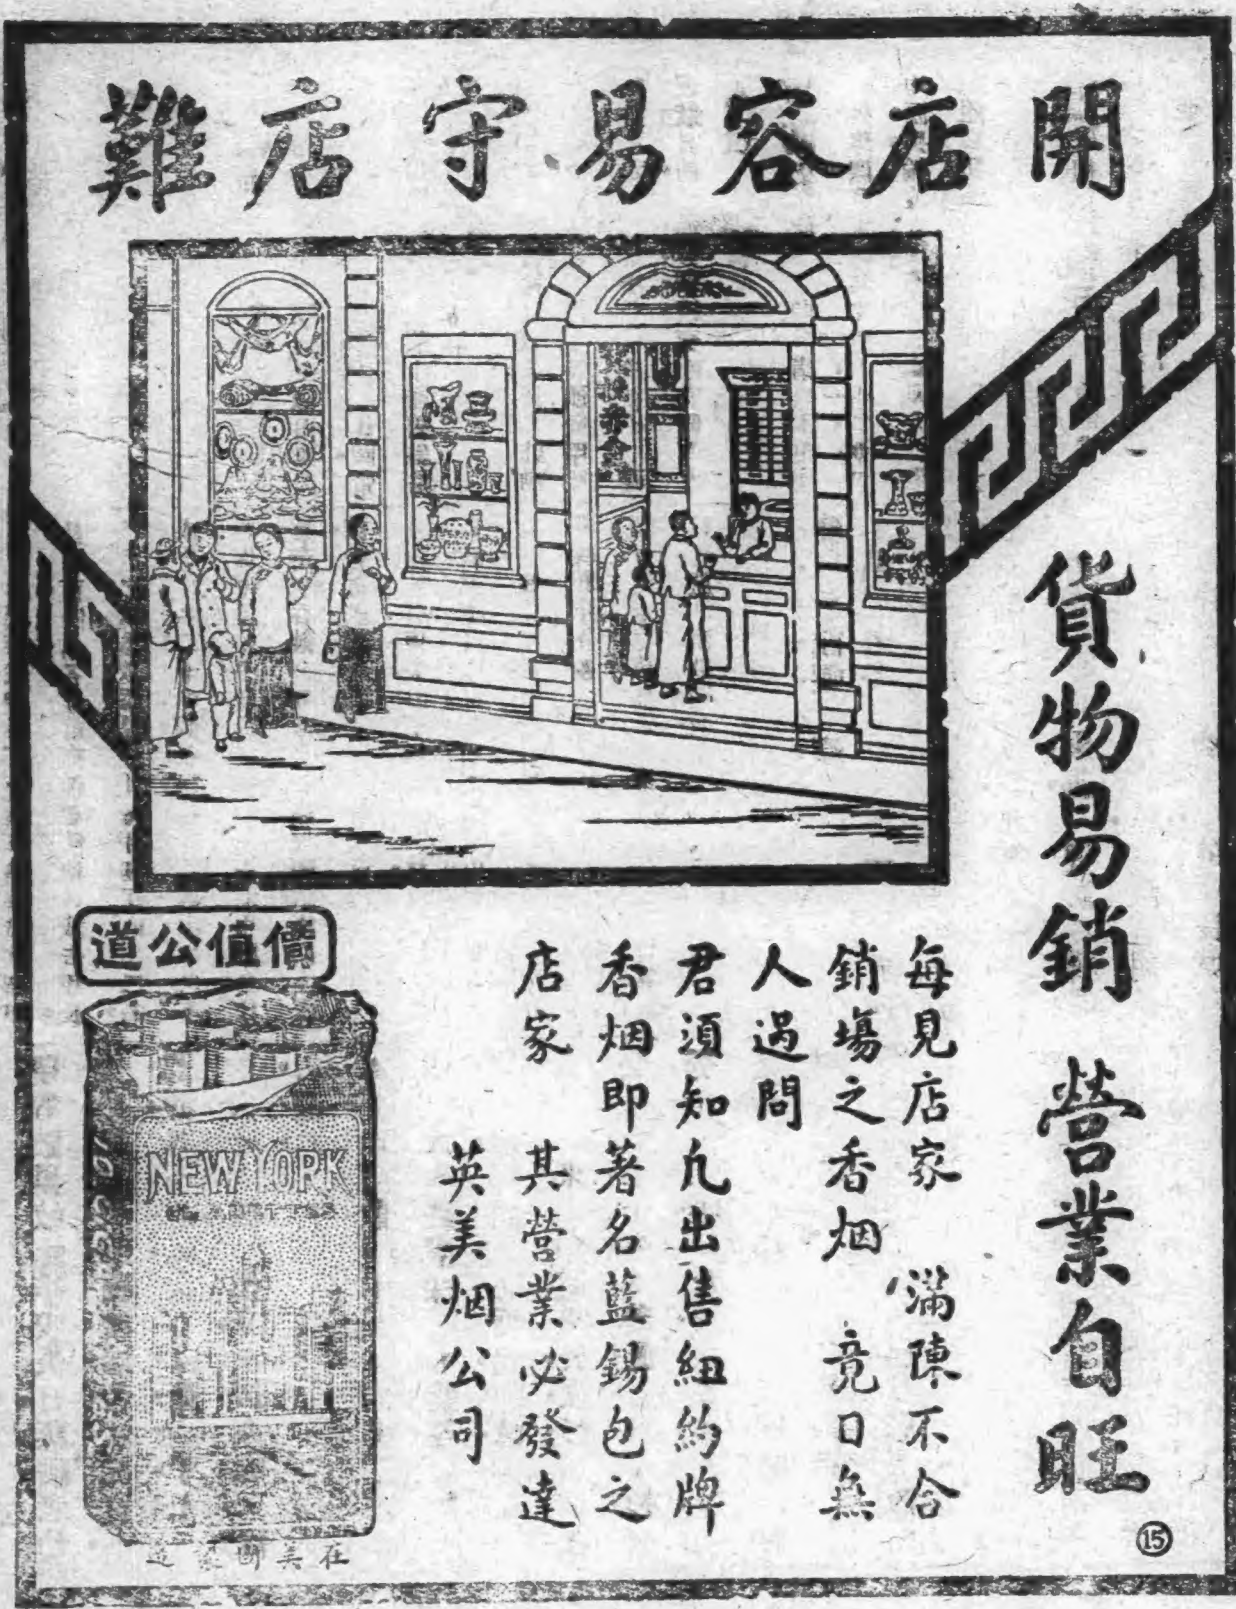 開店容易守店難
貨物易銷　營業自旺
每見店家　滿陳不合
銷塲之香烟　竟日無
人過問
君須知凢出售紐約牌
香烟即著名藍錫包之
店家　其營業必發達
英美烟公司
價值公道
NEW YORK
CIGARETTES
在美國製造
15